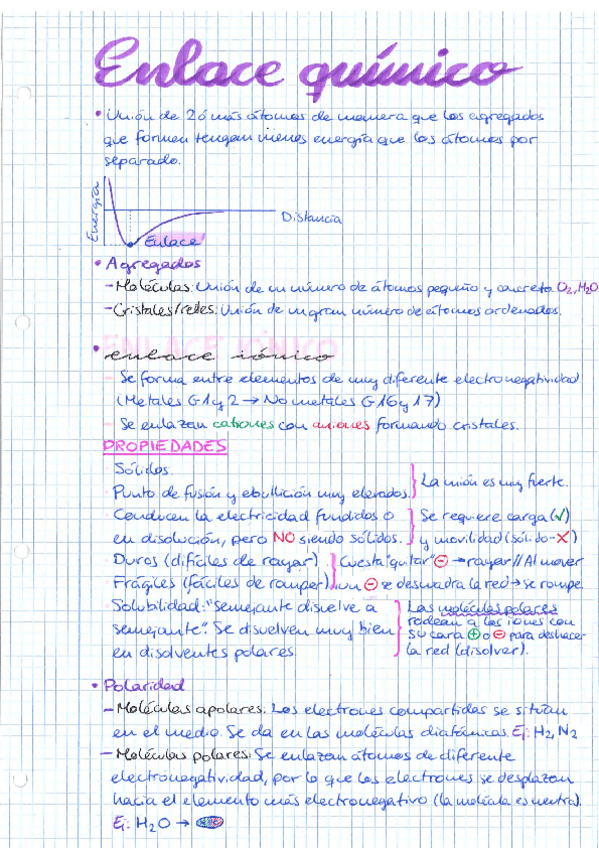 Enlace químico
• Unión de 2 ó más átomos de manera que los agregados
que formen tengan menos energía que los átomos por
separado.
Energía
Distancia
Enlace
• Agregados
- Moléculas: Unión de un número de átomos pequeño y concreto. O₂, H₂O
- Cristales/redes: Unión de un gran número de átomos ordenados.
ENLACE IÓNICO
• enlace iónico
- Se forma entre elementos de muy diferente electronegatividad
(Metales G1 y 2 → No metales G16 y 17)
- Se enlazan cationes con aniones formando cristales.
PROPIEDADES
Sólidos.
Punto de fusión y ebullición muy elevados.
La unión es muy fuerte.
Conducen la electricidad fundidos o
en disolución, pero NO siendo sólidos.
Se requiere carga (✓)
y movilidad (sólido-X)
Duros (difíciles de rayar)
Frágiles (fáciles de romper)
Cuesta "quitar" ⊖ → rayar // Al mover
un ⊖ se descuadra la red → se rompe.
Solubilidad: "semejante disuelve a
semejante". Se disuelven muy bien
en disolventes polares.
Las moléculas polares
rodean a los iones con
su cara ⊕ o ⊖ para deshacer
la red (disolver).
• Polaridad
- Moléculas apolares: Los electrones compartidos se sitúan
en el medio. Se da en las moléculas diatómicas. Ej: H₂, N₂
- Moléculas polares: Se enlazan átomos de diferente
electronegatividad, por lo que los electrones se desplazan
hacia el elemento más electronegativo (la molécula es neutra).
Ej: H₂O →